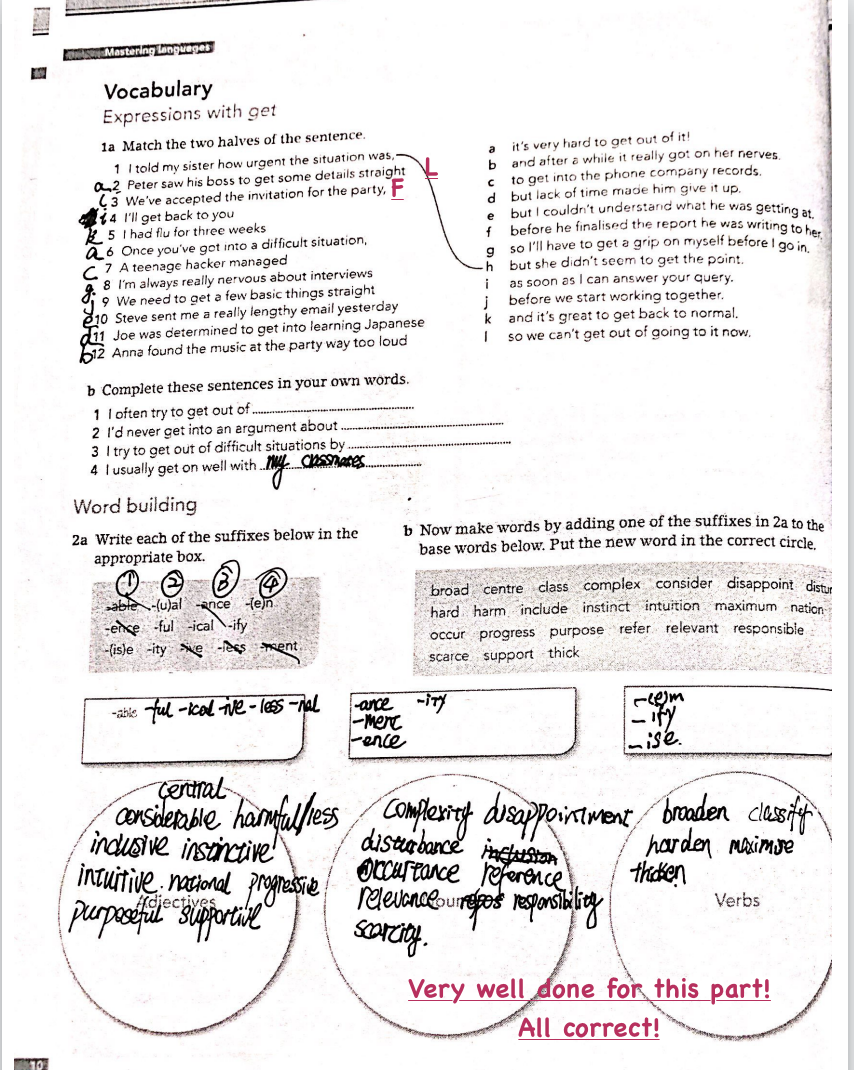 Mastering languages
Vocabulary
Expressions with get
1a Match the two halves of the sentence.
1 I told my sister how urgent the situation was,
a 2 Peter saw his boss to get some details straight L
3 We've accepted the invitation for the party, F
i 4 I'll get back to you
k 5 I had flu for three weeks
a 6 Once you've got into a difficult situation,
c 7 A teenage hacker managed
g 8 I'm always really nervous about interviews
j 9 We need to get a few basic things straight
e 10 Steve sent me a really lengthy email yesterday
d 11 Joe was determined to get into learning Japanese
b 12 Anna found the music at the party way too loud
a it's very hard to get out of it!
b and after a while it really got on her nerves.
c to get into the phone company records.
d but lack of time made him give it up.
e but I couldn't understand what he was getting at.
f before he finalised the report he was writing to her
g so I'll have to get a grip on myself before I go in.
h but she didn't seem to get the point.
i as soon as I can answer your query.
j before we start working together.
k and it's great to get back to normal.
l so we can't get out of going to it now.
b Complete these sentences in your own words.
1 I often try to get out of
2 I'd never get into an argument about
3 I try to get out of difficult situations by
4 I usually get on well with my classmates
Word building
2a Write each of the suffixes below in the
appropriate box.
1 2 3 4
-able -(u)al -ance -(e)n
-ence -ful -ical -ify
-(is)e -ity -ive -less -ment
b Now make words by adding one of the suffixes in 2a to the
base words below. Put the new word in the correct circle.
broad centre class complex consider disappoint distur
hard harm include instinct intuition maximum nation
occur progress purpose refer relevant responsible
scarce support thick
-able -ful -ical -ive -less -nal
-ance -ity
-ment
-ence
-(e)n
-ify
-ise.
central
considerable harmful/less
inclusive instinctive
intuitive. national progressive
Adjectives
purposeful supportive
complexity disappointment
disturbance inclusion
occurrance reference
relevance responsibility
scarcity.
broaden classify
harden maximise
thicken
Verbs
Very well done for this part!
All correct!
10